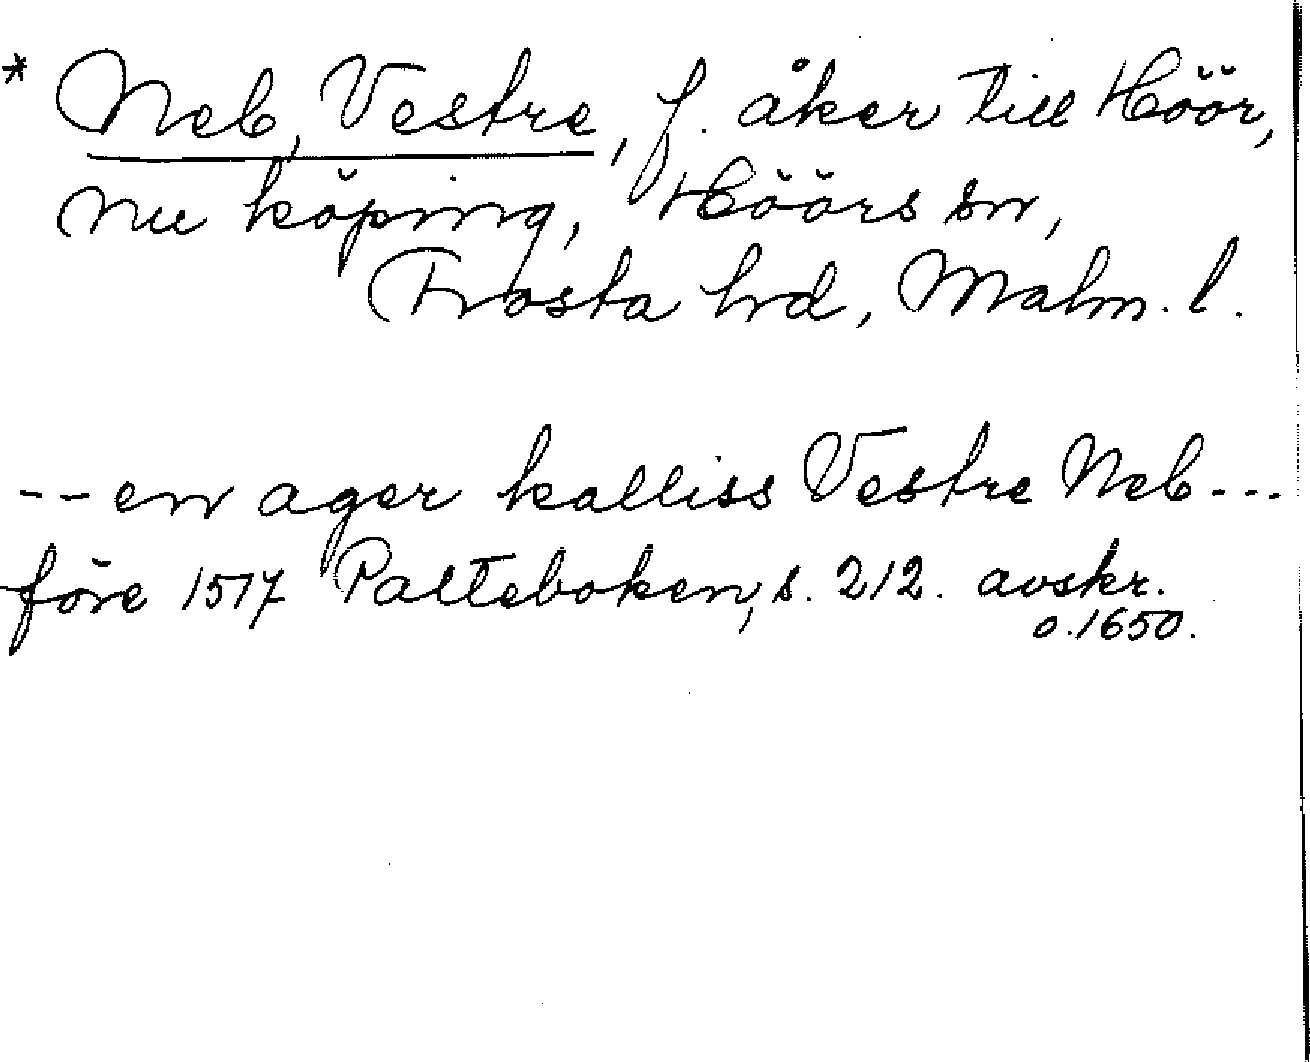 * Neb, Vestre, f. åker till Höör,
nu köping, Höörs sn,
Frosta hrd, Malm. l.
-- en ager kalliss Vestre Neb ---
före 1517 Palteboken, s. 212. avskr.
o. 1650.